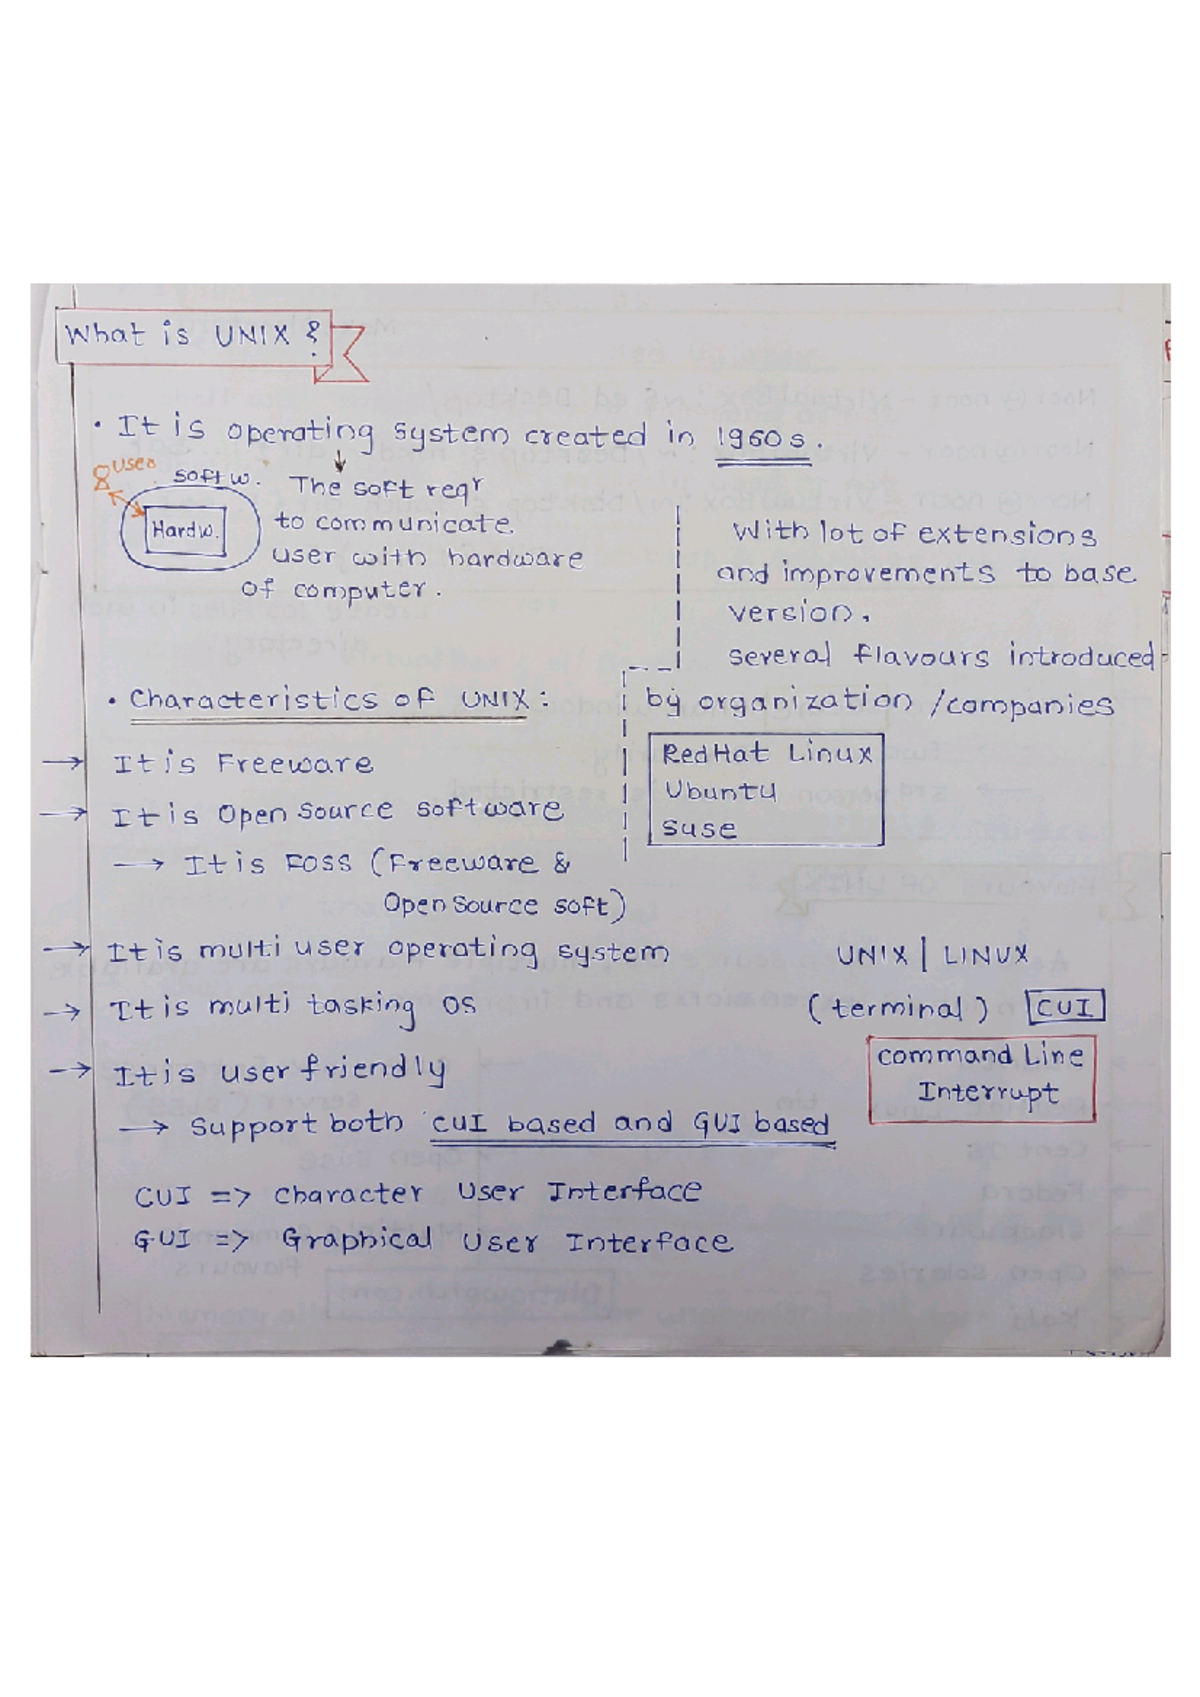 What is UNIX ?
• It is operating system created in 1960s.
user
softw.
Hardw.
The soft reqr
to communicate
user with hardware
of computer.
With lot of extensions
and improvements to base
version,
several flavours introduced
by organization /companies
RedHat Linux
Ubuntu
Suse
• Characteristics of UNIX :
→ It is Freeware
→ It is Open Source software
→ It is FOSS (Freeware &
Open Source soft)
→ It is multi user operating system
→ It is multi tasking OS
→ It is user friendly
→ Support both CUI based and GUI based
CUI => Character User Interface
GUI => Graphical User Interface
UNIX | LINUX
(terminal) CUI
Command Line
Interrupt